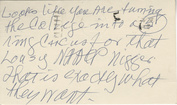 Looks like you are turning
the College into a
ring Circus for that
Lousy NAACP Nigger
that is exactly what
they want.